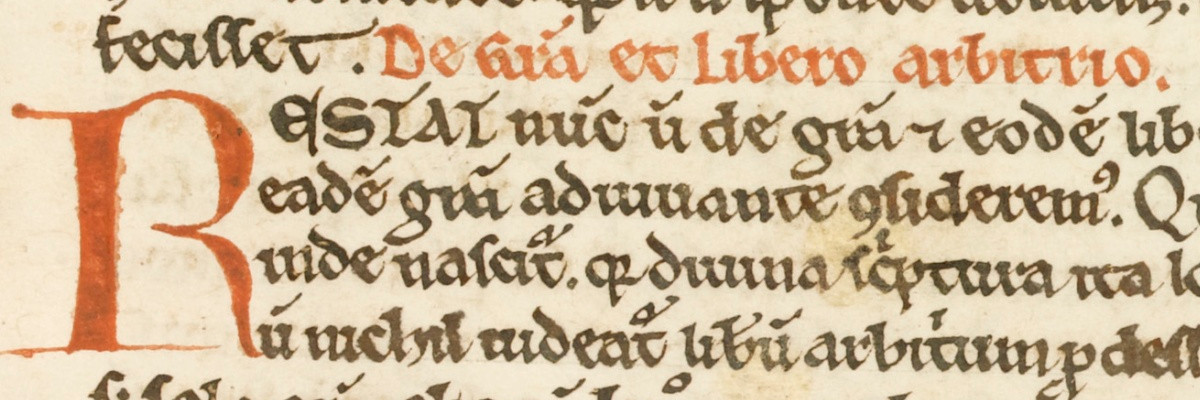 fecisset. De gr̃a et libero arbitrio.
RESTAT nũc ũ de gr̃a ⁊ eodẽ lib
eadẽ gr̃a adiuuante ꝯsideremꝰ. Q
inde nascit̃. qꝛ diuina sc̃ptura ita lo
ũ nichil uideat̃ lib̃ũ arbit̾um ꝑdess